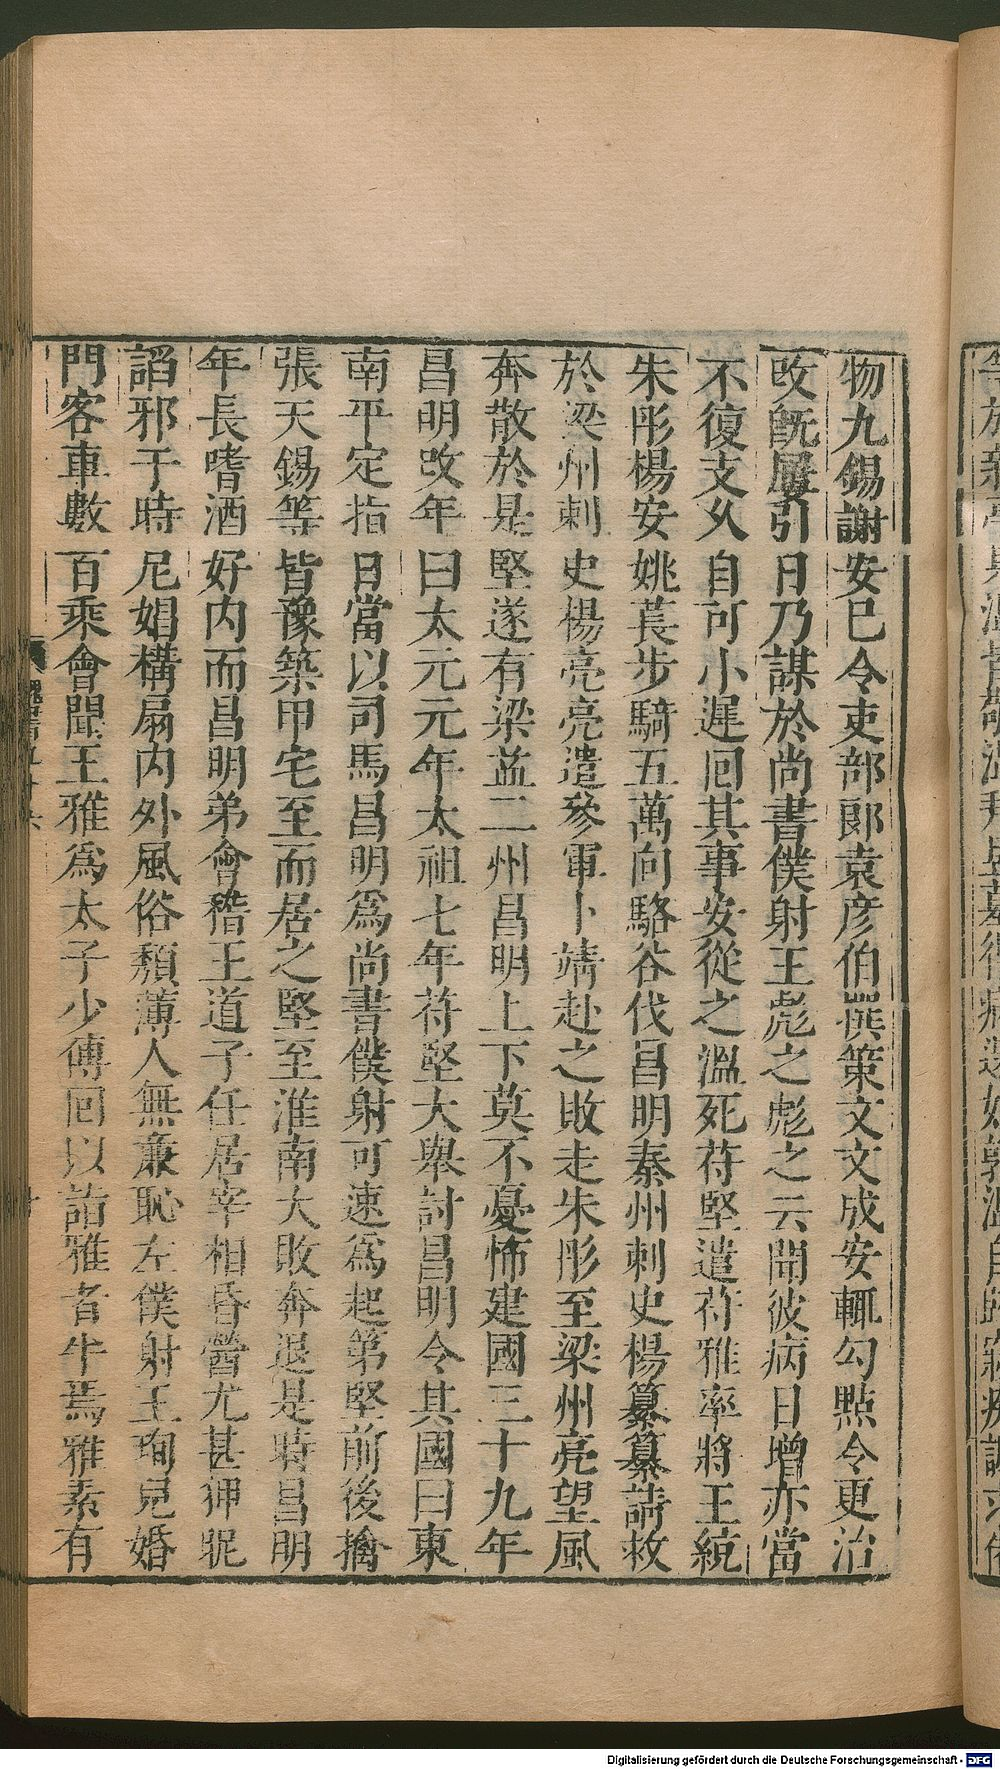 物九錫謝安巳令吏部郎袁彥伯撰策文文成安輒勾點令更治
攺旣屢引日乃謀於尚書僕射王彪之彪之云聞彼病日增亦當
不復支久自可小遲囘其事安從之溫死苻堅遣苻雅率將王統
朱肜楊安姚萇步騎五萬向駱谷伐昌明秦州刺史楊纂纂請救
於梁州刺史楊亮亮遣參軍卜靖赴之敗走朱肜至梁州亮望風
奔散於是堅遂有梁益二州昌明上下莫不憂怖建國三十九年
昌明攺年曰太元元年太祖七年苻堅大舉討昌明令其國曰東
南平定指日當以司馬昌明爲尚書僕射可速爲起第堅前後擒
張天錫等皆豫築甲宅至而居之堅至淮南大敗奔退是時昌明
年長嗜酒好内而昌明弟會稽王道子任居宰相昏䣱尤甚狎昵
諂邪于時尼娼構扇内外風俗頹薄人無亷恥左僕射王珣皃婚
門客車數百乘會聞王雅爲太子少傅囘以詣雅者半焉雅素有
Digitalisierung gefördert durch die Deutsche Forschungsgemeinschaft - DFG